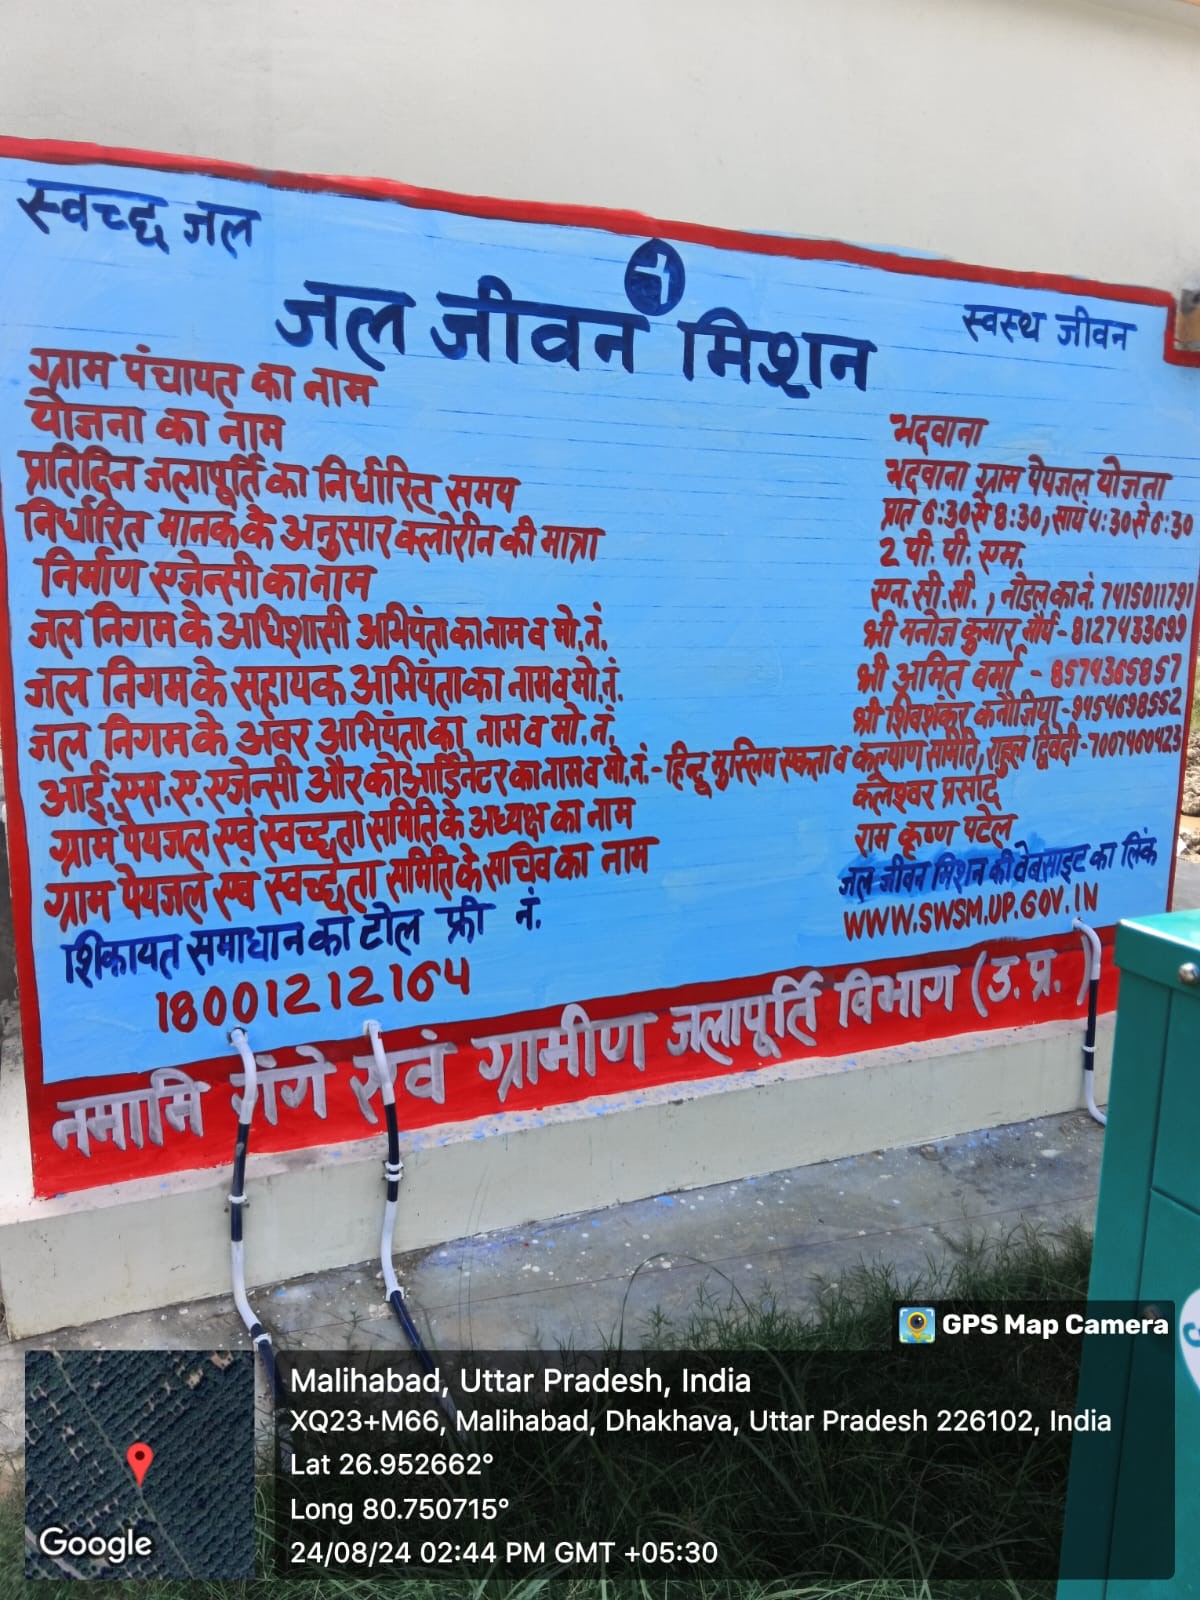 स्वच्छ जल
जल जीवन मिशन
स्वस्थ जीवन
ग्राम पंचायत का नाम भदवाना
योजना का नाम भदवाना ग्राम पेयजल योजना
प्रतिदिन जलापूर्ति का निर्धारित समय प्रात 6:30 से 8:30, सायं 4:30 से 6:30
निर्धारित मानक के अनुसार क्लोरीन की मात्रा 2 पी. पी. एम.
निर्माण एजेन्सी का नाम एन. सी. सी. , नोडल का नं. 7415011791
जल निगम के अधिशासी अभियंता का नाम व मो. नं. श्री मनोज कुमार मौर्य - 8127433699
जल निगम के सहायक अभियंता का नाम व मो. नं. श्री अमित वर्मा - 8574365857
जल निगम के अवर अभियंता का नाम व मो. नं. श्री शिवशंकर कनौजिया - 9454698552
आई. एस. ए. एजेन्सी और कोआर्डिनेटर का नाम व मो. नं. - हिन्दू मुस्लिम एकता व कल्याण समिति, राहुल द्विवेदी - 7007460423
ग्राम पेयजल एवं स्वच्छता समिति के अध्यक्ष का नाम कलेश्वर प्रसाद
ग्राम पेयजल एवं स्वच्छता समिति के सचिव का नाम राम कृष्ण पटेल
शिकायत समाधान का टोल फ्री नं. जल जीवन मिशन की वेबसाइट का लिंक
18001212164 WWW.SWSM.UP.GOV.IN
नमामि गंगे एवं ग्रामीण जलापूर्ति विभाग (उ. प्र. )
GPS Map Camera
Malihabad, Uttar Pradesh, India
XQ23+M66, Malihabad, Dhakhava, Uttar Pradesh 226102, India
Lat 26.952662°
Long 80.750715°
24/08/24 02:44 PM GMT +05:30
Google